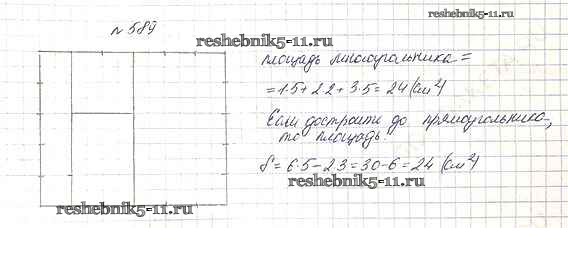 N 589
reshebnik5-11.ru
reshebnik5-11.ru
площадь многоугольника =
= 1·5 + 2·2 + 3·5 = 24 (см²)
Если достроить до прямоугольника,
то площадь:
S = 6·5 - 2·3 = 30 - 6 = 24 (см²)
reshebnik5-11.ru
reshebnik5-11.ru